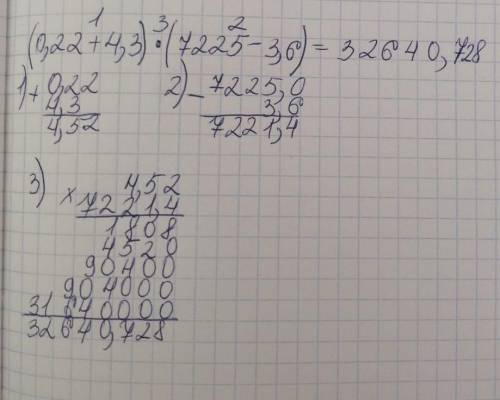 1 3 2
(0,22 + 4,3) · (7225 - 3,6) = 32640,728
1) + 0,22 2) - 7225,0
4,3 3,6
4,52 7221,4
3) x 4,52
7221,4
1808
4520
90400
904000
31640000
32640,728